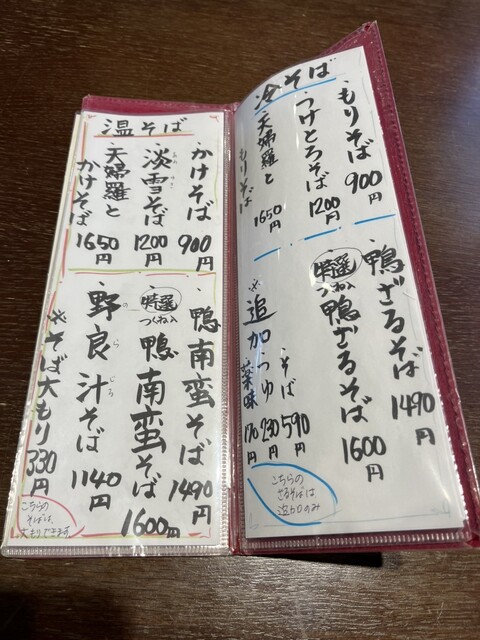 温そば
・かけそば 900円
・淡雪そば 1200円
あわ ゆき
・天婦羅と
かけそば 1650円
・鴨南蛮そば 1490円
・特選 つくね入 鴨南蛮そば 1600円
・野良汁そば 1140円
の ら じる
※そば大もり 330円
こちらの
そばは、
大もりできます
冷そば
・もりそば 900円
・つけとろそば 1200円
・天婦羅と
もりそば 1650円
・鴨ざるそば 1490円
・特選 つくね入 鴨ざるそば 1600円
※追加 そば 590円
つゆ 230円
薬味 170円
こちらの
ざるそばは
追加のみ